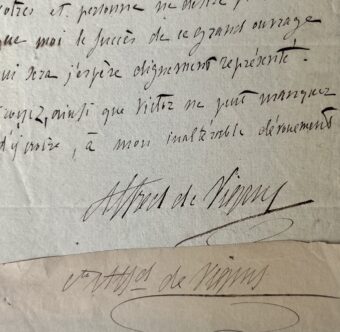 vôtres et personne ne désire p
que moi le succès de ce grand ouvrage
qui sera j'espère dignement représenté.
royez, ainsi que Victor ne peut manquer
d'y croire, à mon inaltérable dévouement
Alfred de Vigny
Cte Alfd de Vigny